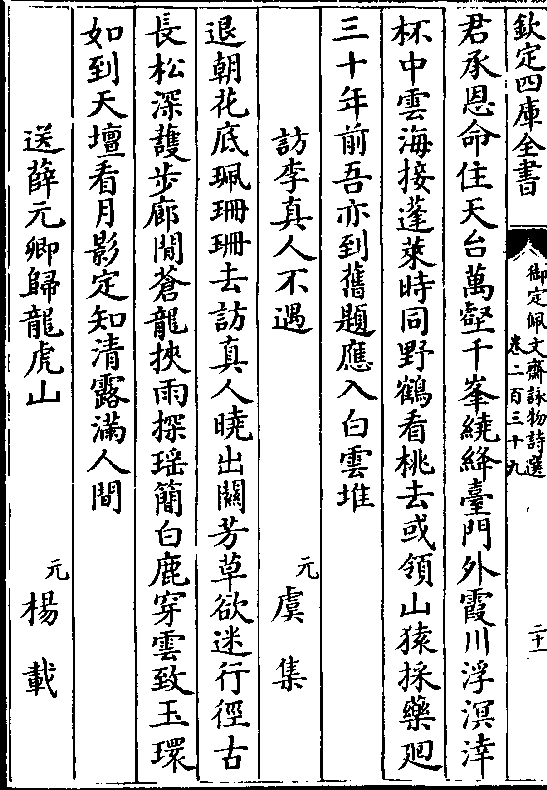 欽定四庫全書
御定佩文齋詠物詩選
卷二百三十九
二十一
君承恩命住天台萬壑千峯繞絳臺門外霞川浮溟涬
杯中雲海接蓬萊時同野鶴看桃去或領山猿採藥廻
三十年前吾亦到舊題應入白雲堆
訪李真人不遇
元 虞集
退朝花底珮珊珊去訪真人曉出闗芳草欲迷行徑古
長松深護步廊閒蒼龍挾雨探瑶簡白鹿穿雲致玉環
如到天壇看月影定知清露滿人間
送薛元卿歸龍虎山
元 楊載